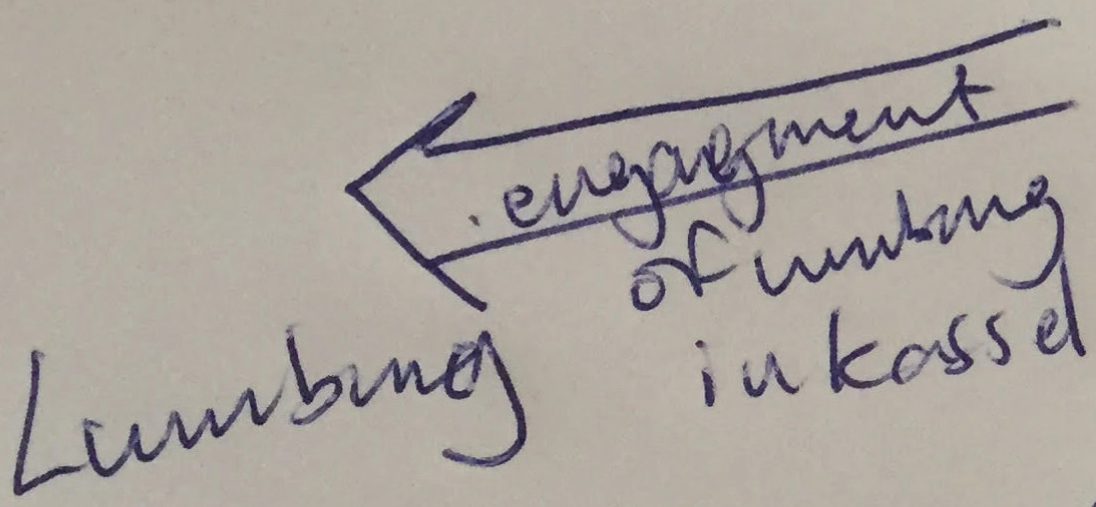 engagment
of lumbung
in kassel
Lumbung